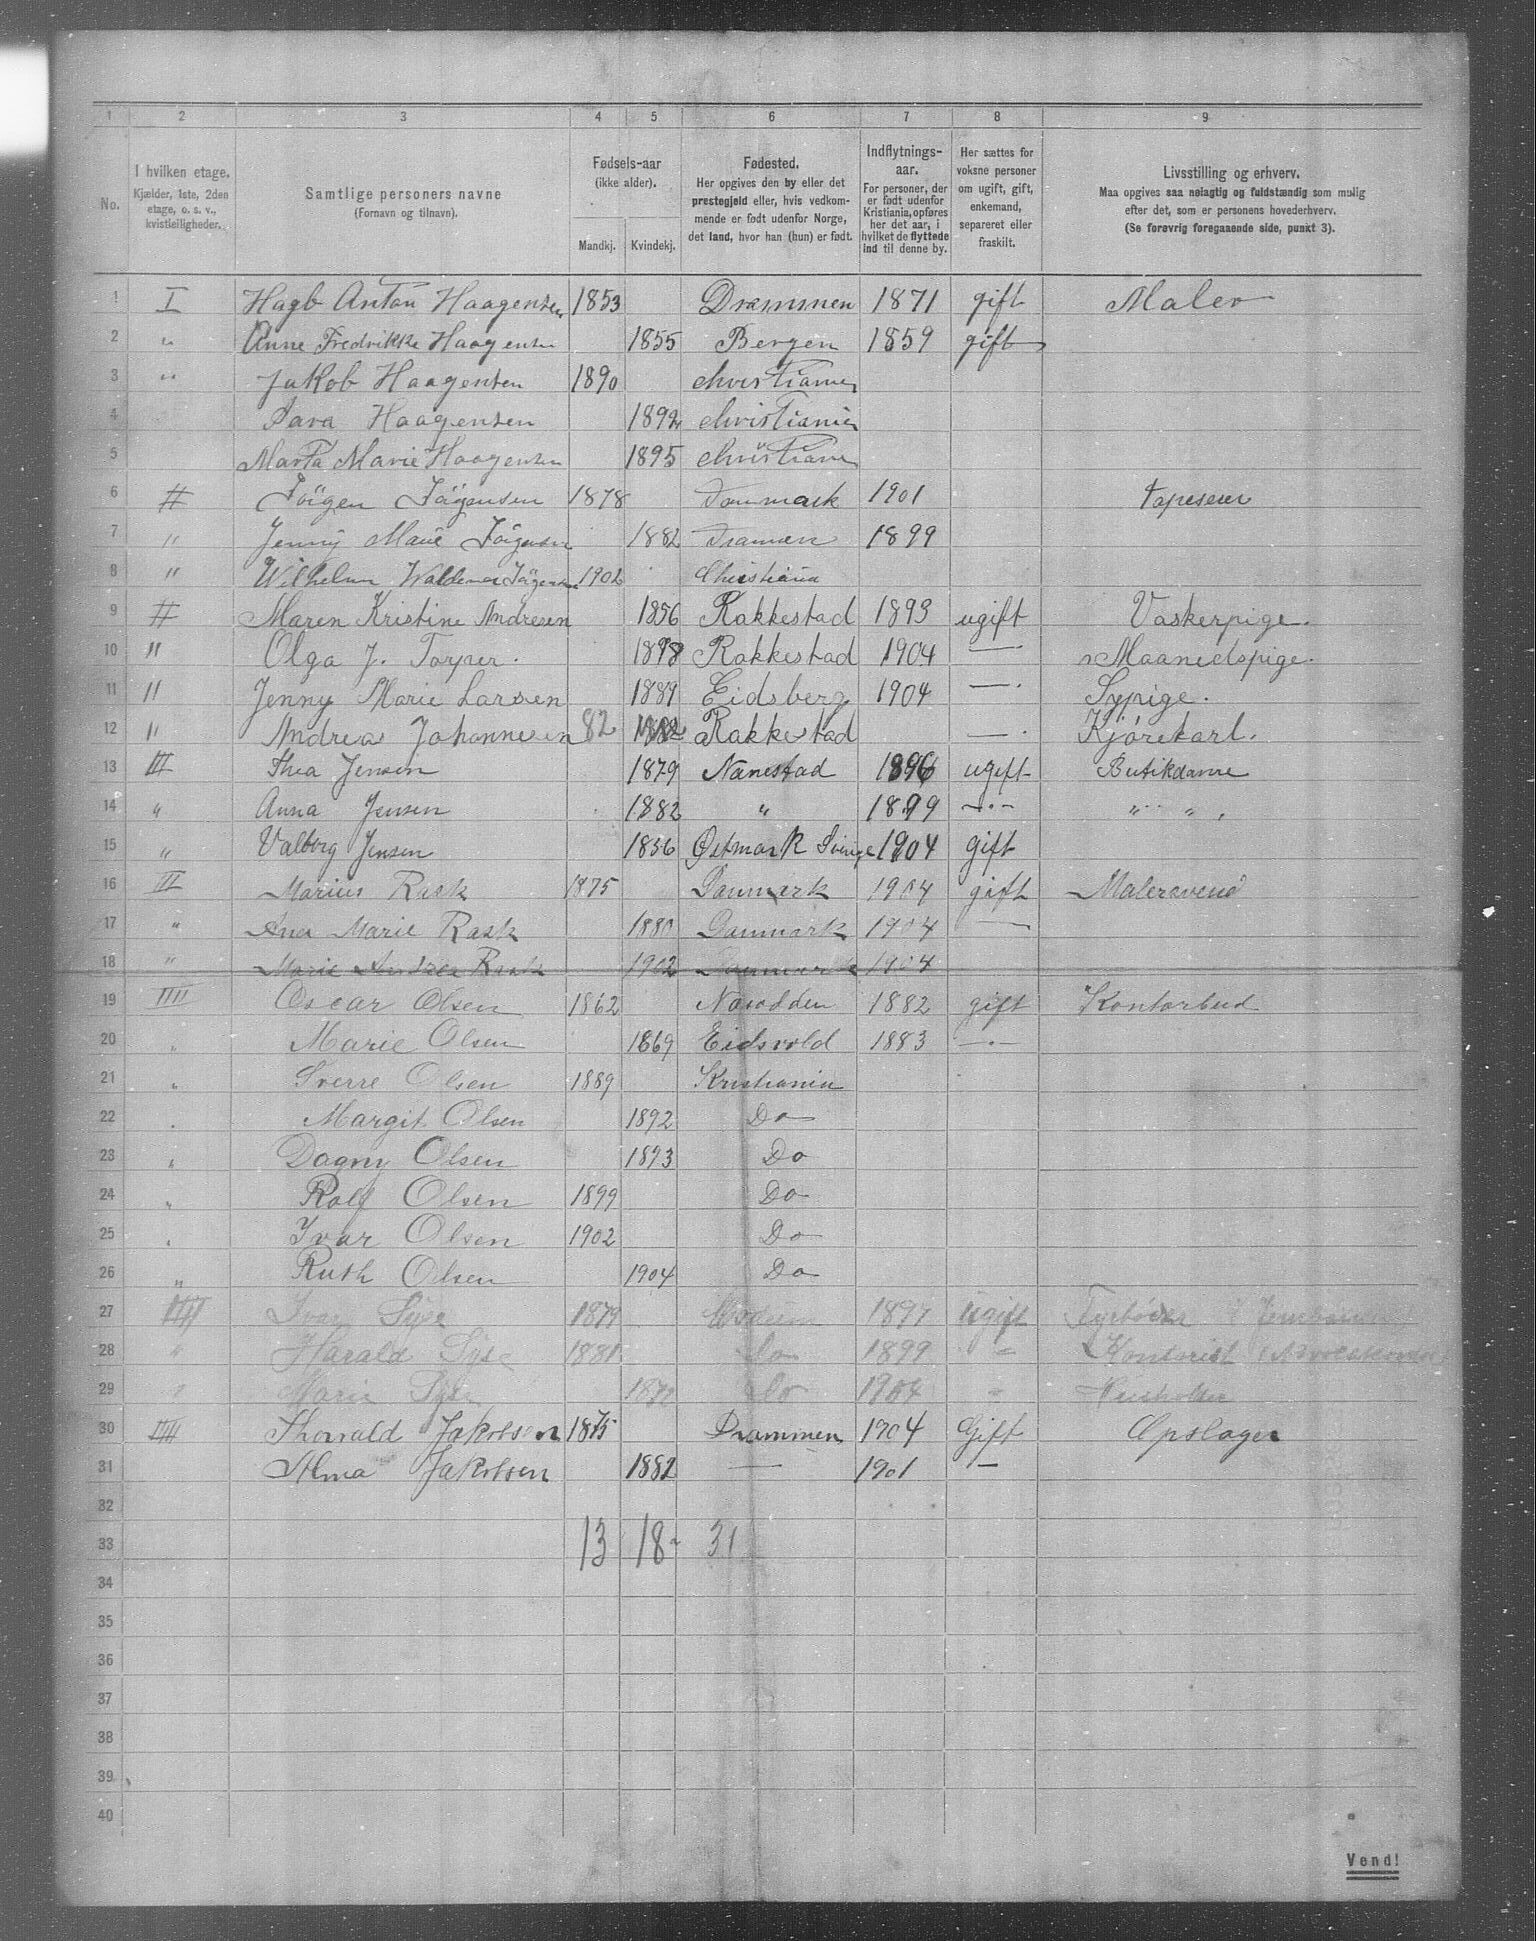 1 2 3 4 5 6 7 8 9
No.
I hvilken etage.
Kjælder, 1ste, 2den
etage, o. s. v.,
kvistleiligheder.
Samtlige personers navne
(Fornavn og tilnavn).
Fødsels-aar
(ikke alder).
Mandkj. Kvindekj.
Fødested.
Her opgives den by eller det
prestegjeld eller, hvis vedkom-
mende er født udenfor Norge,
det land, hvor han (hun) er født.
Indflytnings-
aar.
For personer, der
er født udenfor
Kristiania, opføres
her det aar, i
hvilket de flyttede
ind til denne by.
Her sættes for
voksne personer
om ugift, gift,
enkemand,
separeret eller
fraskilt.
Livsstilling og erhverv.
Maa opgives saa nøiagtig og fuldstændig som mulig
efter det, som er personens hovederhverv.
(Se forøvrig foregaaende side, punkt 3).
1 I Hagb Anton Haagensen 1853 Drammen 1871 gift Maler
2 " Anne Fredrikke Haagensen 1855 Bergen 1859 gift
3 " Jakob Haagensen 1890 christiania
4 Sara Haagensen 1892 christiania
5 Marta Marie Haagensen 1895 christiania
6 II Jörgen Jörgensen 1878 Danmark 1901 Tapeserer
7 " Jenny Marie Jörgensen 1882 Dramen 1899
8 " Wilhelm Waldemar Jörgensen 1902 Christiania
9 II Maren Kristine Andresen 1856 Rakkestad 1893 ugift Vaskerpige.
10 " Olga J. Torper. 1898 Rakkestad 1904 — Maanedspige.
11 " Jenny Marie Larsen 1889 Eidsberg 1904 — . Sypige.
12 " Andreas Johannesen 82 1882 Rakkestad — . Kjørekarl.
13 III Thea Jensen 1879 Nanestad 1896 ugift Butikdame
14 " Anna Jensen 1882 " 1899 — . — " " .
15 " Valborg Jensen 1856 Østmark Sverige 1904 gift
16 III Marius Rask 1875 Danmark 1904 gift Malersvend
17 " Ane Marie Rask 1880 Danmark 1904 —
18 " Marie Andrea Rask 1902 Danmark 1904
19 IIII Oscar Olsen 1862 Nesodden 1882 gift Kontorbud
20 " Marie Olsen 1869 Eidsvold 1883 — . —
21 " Sverre Olsen 1889 Kristiania
22 " Margit Olsen 1892 Do
23 " Dagny Olsen 1893 Do
24 " Rolf Olsen 1899 Do
25 " Ivar Olsen 1902 Do
26 " Ruth Olsen 1904 Do
27 IIII Ivar Syse 1879 Modum 1897 ugift Fyrbøder
28 " Harald Syse 1881 Do 1899 " Kontorist
29 " Marie Syse Do 1904 "
30 IIII Thorvald Jakobsen 1875 Drammen 1904 Gift Opslager
31 Alma Jakobsen 1882 — 1901 —
32
33 13 18 - 31
34
35
36
37
38
39
40
Vend!